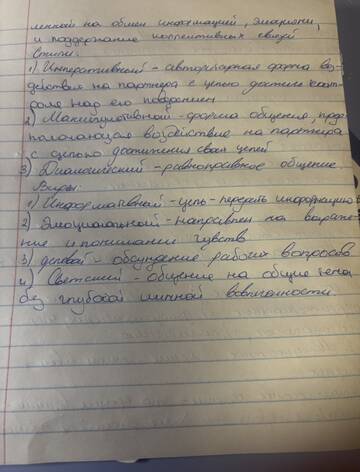 ленной на обмен информацией, эмоциями,
и поддержание коллективных связей
Стили:
1) Императивный - авторитарная форма воз-
действия на партнера с целью достичь конт-
роля над его поведением
2) Манипулятивный - форма общения, пред-
полагающая воздействие на партнера
с целью достижения своих целей
3) Диалогический - равноправное общение
Виды:
1) Информативный - цель - передать информацию
2) Эмоциональный - направлен на выраже-
ние и понимание чувств
3) Деловой - обсуждение рабочих вопросов
4) Светский - общение на общие темы
без глубокой личной вовлеченности.